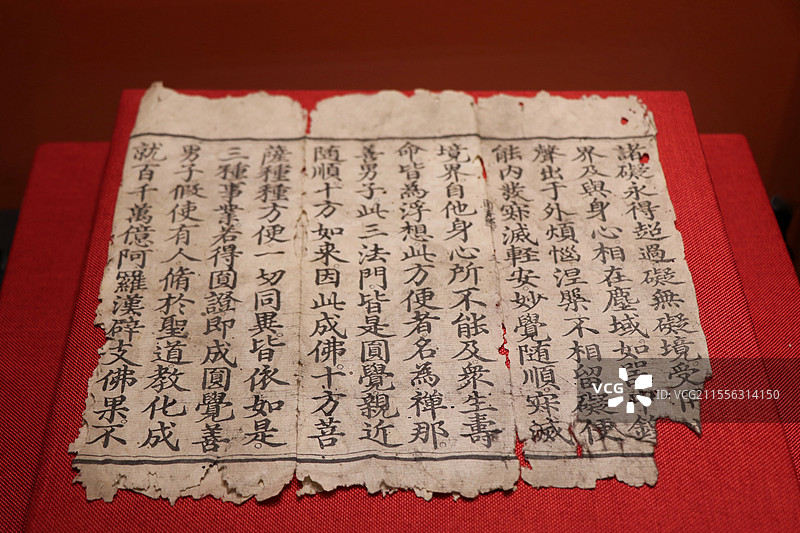 諸礙永得超過礙無礙境受
界及與身心相在塵域如
聲出于外煩惱涅槃不相留礙便
能内發寂滅輕安妙覺随順寂滅
境界自他身心所不能及衆生壽
命皆為浮想此方便者名為禪那。
善男子此三法門皆是圓覺親近
随順十方如来因此成佛。十方菩
薩種種方便一切同異皆依如是。
三種事業若得圓證即成圓覺善
男子假使有人脩於聖道教化成
就百千萬億阿羅漢辟支佛果不
VCG
VCG211556314150